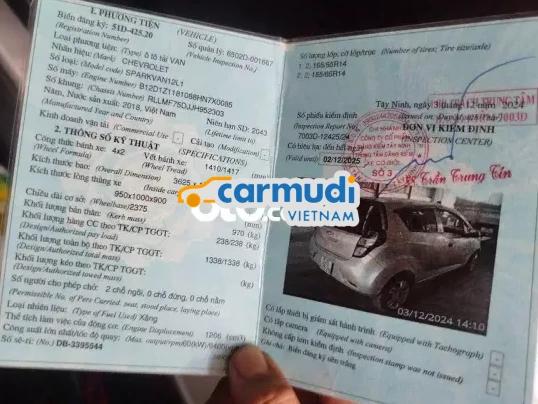 1. PHƯƠNG TIỆN (VEHICLE)
Biển đăng ký: 51D-425.20
(Registration Number)
Số quản lý: 6502D-001667
(Vehicle Inspection No.)
Loại phương tiện: (Type) ô tô tải VAN
Nhãn hiệu: (Mark) CHEVROLET
Số loại: (Model code) SPARKVAN12L1
Số máy: (Engine Number) B12D1Z1181068HN7X0085
Số khung: (Chassis Number) RLLMF75DJJH952303
Năm, Nước sản xuất: 2018, Việt Nam
(Manufactured Year and Country)
Niên hạn SD: 2043
(Lifetime limit to)
Kinh doanh vận tải: (Commercial Use)
Cải tạo (Modification)
2. THÔNG SỐ KỸ THUẬT (SPECIFICATIONS)
Công thức bánh xe: 4x2
(Wheel Formula)
Vết bánh xe: 1410/1417
(Wheel Tread)
Kích thước bao: (Overall Dimension) 3625
Kích thước lòng thùng xe
(Inside
950x1000x900
(mm)
Chiều dài cơ sở: (Wheelbase) 2375
Khối lượng bản thân: (Kerb mass) 970 (kg)
Khối lượng hàng CC theo TK/CP TGGT: 238/238 (kg)
(Design/Authorized pay load)
Khối lượng toàn bộ theo TK/CP TGGT: 1338/1338 (kg)
(Design/Authorized total mass)
Khối lượng kéo theo TK/CP TGGT: (kg)
(Design/Authorized towed mass)
Số người cho phép chở: 2 chỗ ngồi, 0 chỗ đứng, 0 chỗ nằm
(Permissible No. of Pers Carried: seat, stood place, laying place)
Loại nhiên liệu: (Type of Fuel Used) Xăng
Thể tích làm việc của động cơ: (Engine Displacement) 1206 (cm3)
Công suất lớn nhất/tốc độ quay: (Max. output/rpm) 60(kW)/6400
Số sê-ri: (No.) DB-3395544
Số lượng lốp, cỡ lốp/trục (Number of tires; Tire size/axle)
1: 2; 165/65R14
2: 2; 165/65R14
Số phiếu kiểm định
(Inspection Report No)
7003D-12425/24
Có hiệu lực đến hết ngày
(Valid until) 02/12/2025
Tây Ninh, ngày 3 tháng 12 năm 2024
ĐƠN VỊ KIỂM ĐỊNH
(INSPECTION CENTER)
7003D
SỐ 3
Trần Trung Tín
carmudi
VIETNAM
03/12/2024 14:10
Có lắp thiết bị giám sát hành trình (Equipped with Tachograph)
Có lắp camera (Equipped with camera)
Không cấp tem kiểm định (Inspection stamp was not issued)
Ghi chú: Biển đăng ký nền trắng